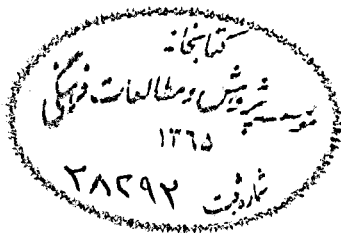 کتابخانه
موسسه پژوهش و مطالعات فرهنگی
۱۳۶۵
شماره ثبت ۲۸۲۹۲